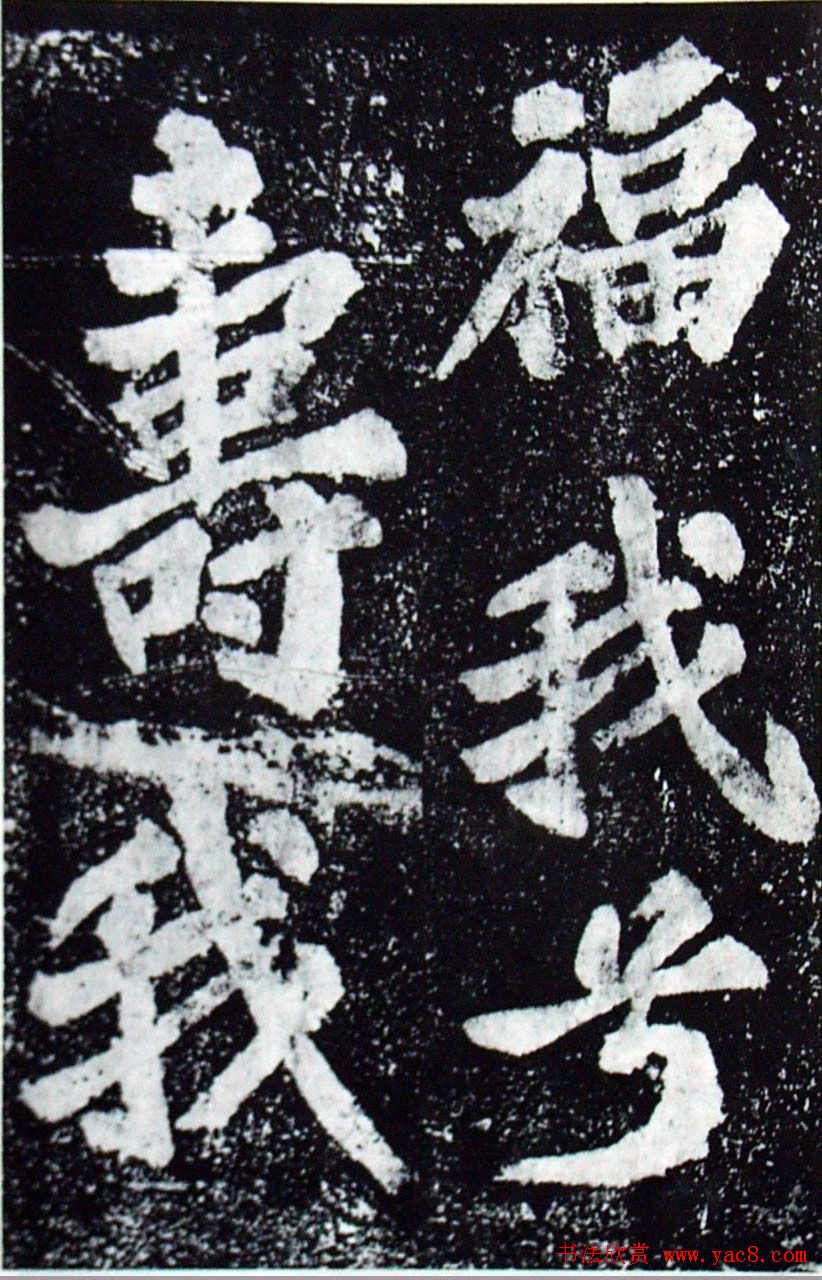 福我兮
壽我
书法欣赏 www.yac8.com